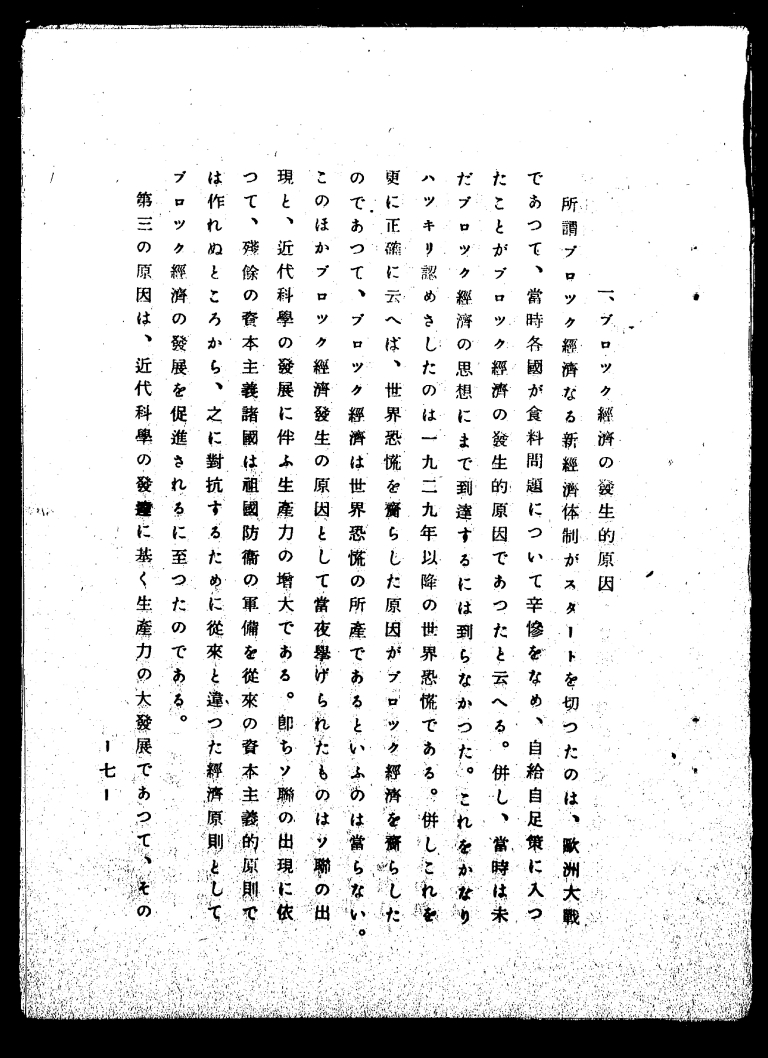 一、ブロック經濟の發生的原因
所謂ブロツク經濟なる新經濟体制がスタートを切つたのは、歐洲大戰
であつて、當時各國が食料問題について辛慘をなめ、自給自足策に入つ
たことがブロツク經濟の發生的原因であつたと云へる。併し、當時は未
だブロツク經濟の思想にまで到達するには到らなかつた。これをかなり
ハツキリ認めさしたのは一九二九年以降の世界恐慌である。併しこれを
更に正確に云へば、世界恐慌を齎らした原因がブロツク經濟を齎らした
のであつて、ブロツク經濟は世界恐慌の所產であるといふのは當らない。
このほかブロツク經濟發生の原因として當夜擧げられたものはソ聯の出
現と、近代科學の發展に伴ふ生產力の增大である。卽ちソ聯の出現に依
つて、殘餘の資本主義諸國は祖國防衞の軍備を從來の資本主義的原則で
は作れぬところから、之に對抗するために從來と違つた經濟原則として
ブロツク經濟の發展を促進されるに至つたのである。
第三の原因は、近代科學の發達に基く生產力の大發展であつて、その
ー七ー